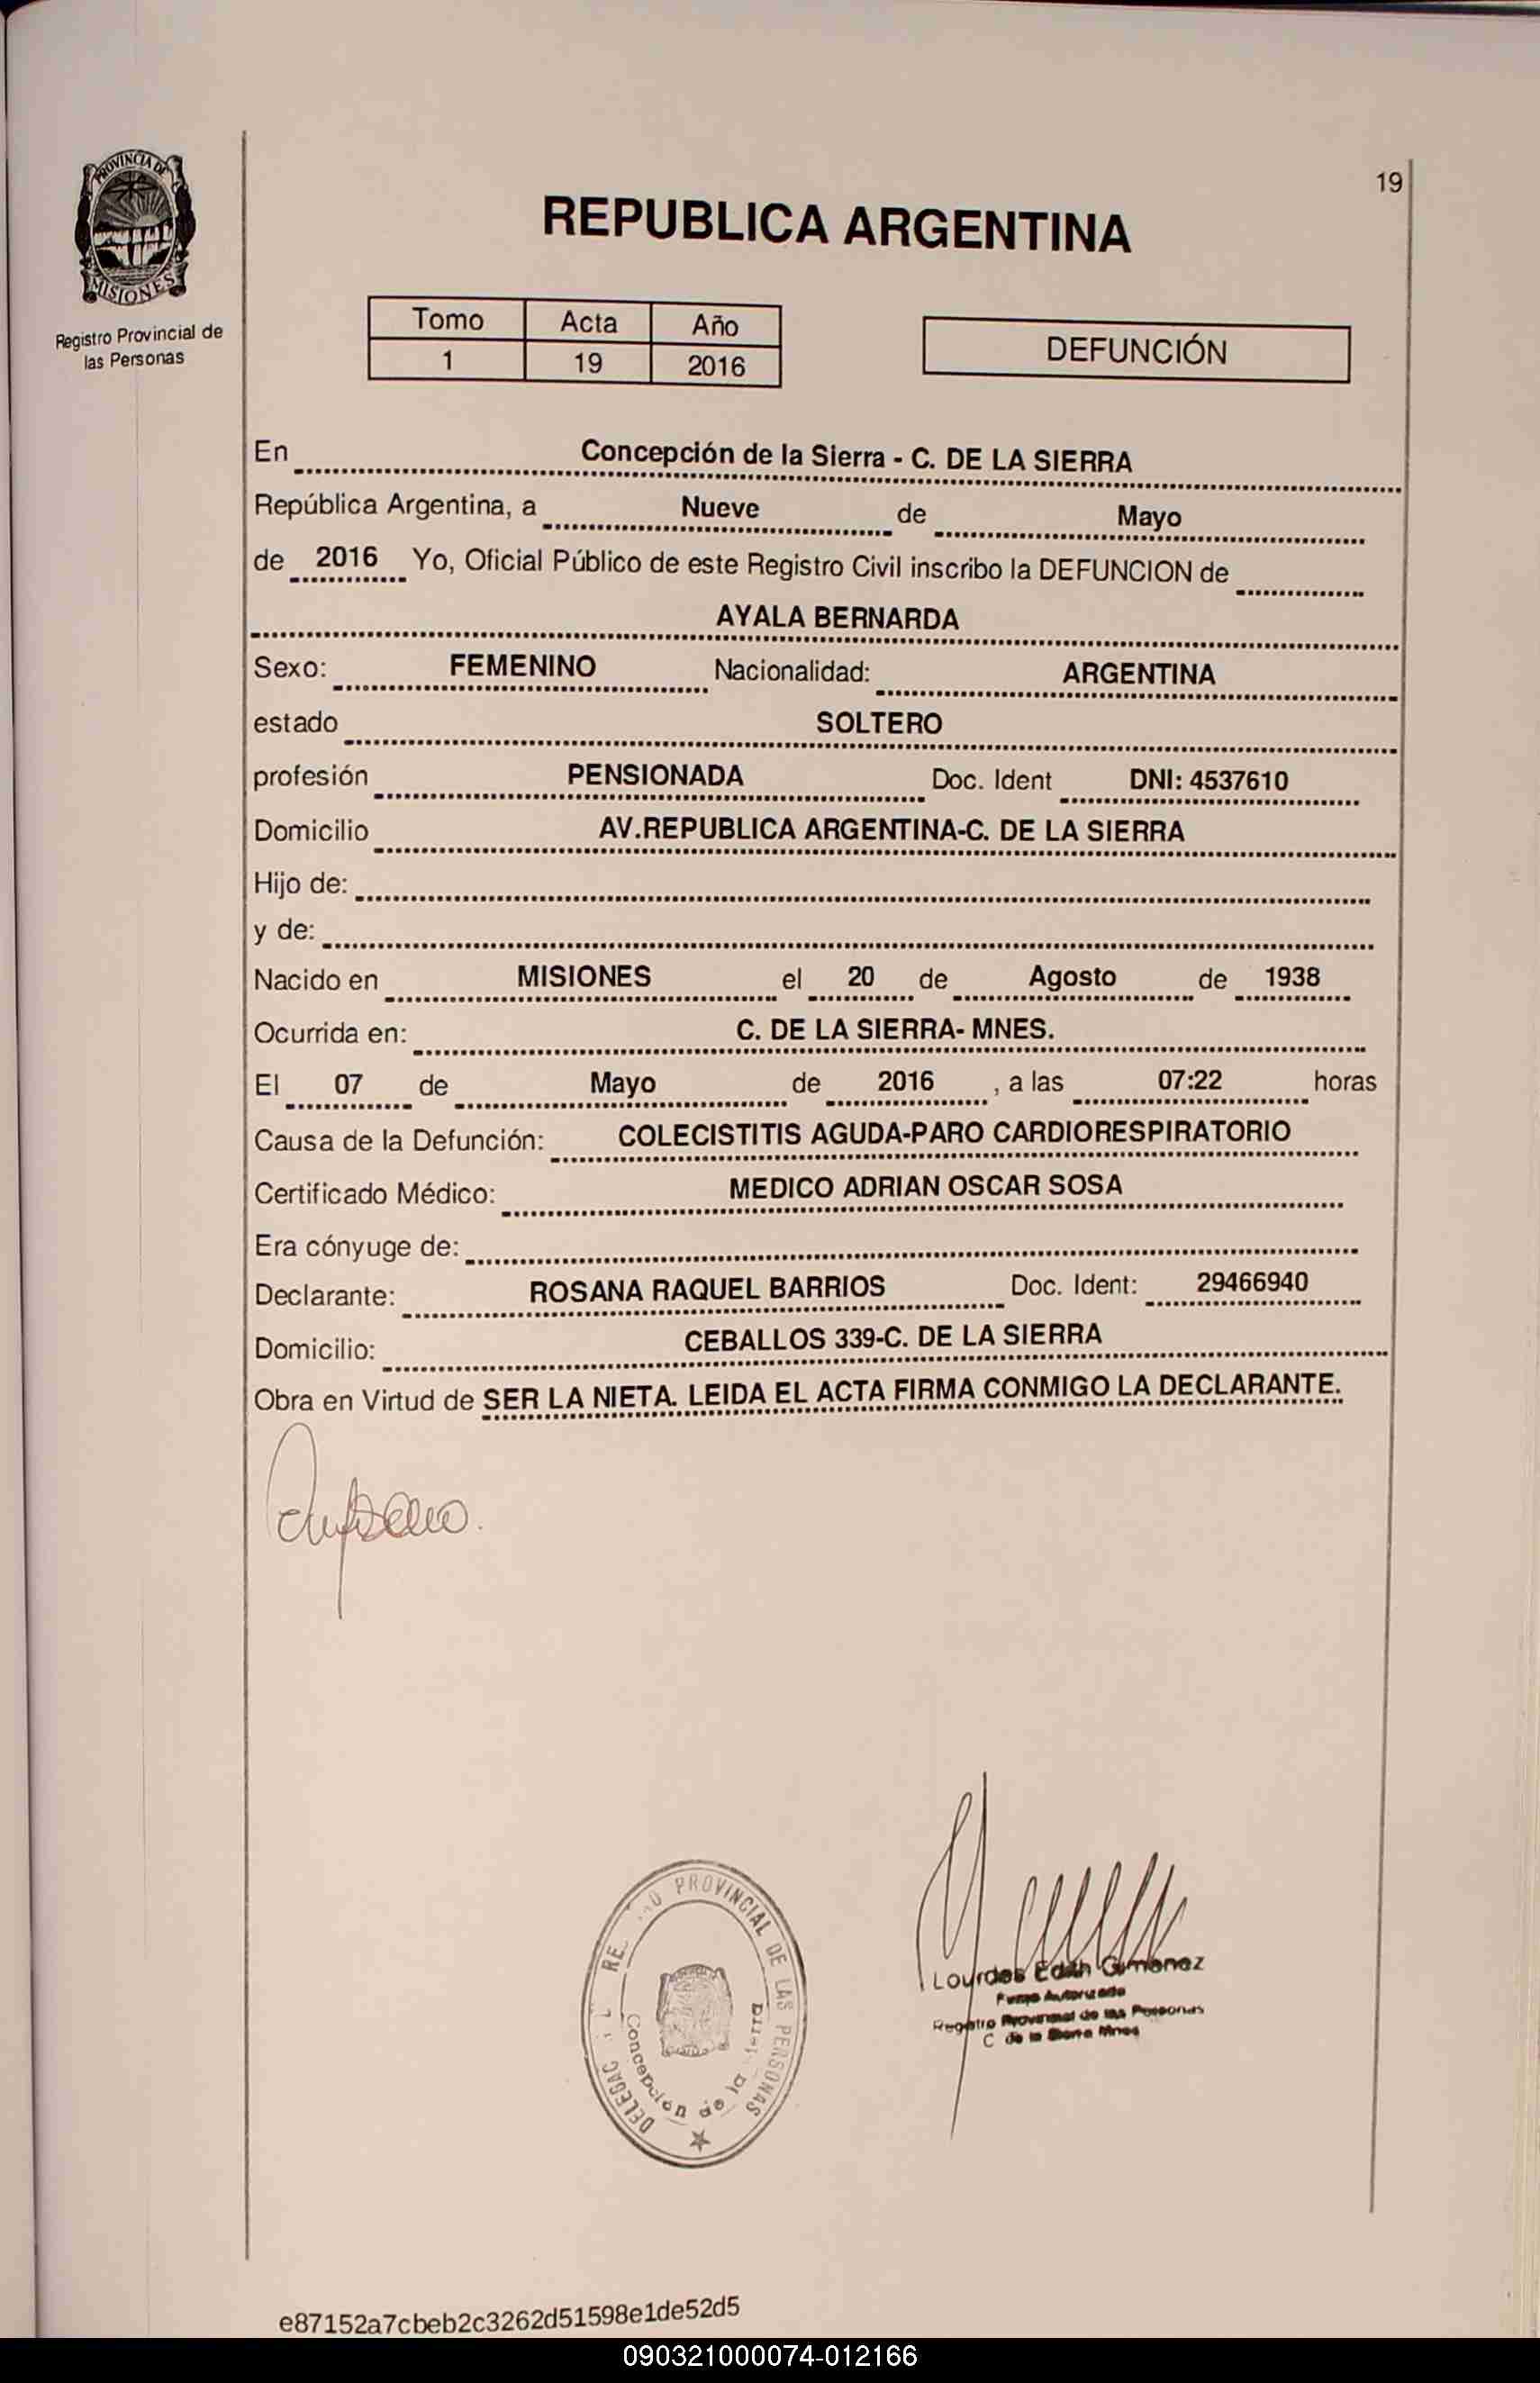 19
PROVINCIA DE
MISIONES
Registro Provincial de
las Personas
REPUBLICA ARGENTINA
Tomo Acta Año
1 19 2016
DEFUNCIÓN
En Concepción de la Sierra - C. DE LA SIERRA
República Argentina, a Nueve de Mayo
de 2016 Yo, Oficial Público de este Registro Civil inscribo la DEFUNCION de
AYALA BERNARDA
Sexo: FEMENINO Nacionalidad: ARGENTINA
estado SOLTERO
profesión PENSIONADA Doc. Ident DNI: 4537610
Domicilio AV.REPUBLICA ARGENTINA-C. DE LA SIERRA
Hijo de:
y de:
Nacido en MISIONES el 20 de Agosto de 1938
Ocurrida en: C. DE LA SIERRA- MNES.
El 07 de Mayo de 2016 , a las 07:22 horas
Causa de la Defunción: COLECISTITIS AGUDA-PARO CARDIORESPIRATORIO
Certificado Médico: MEDICO ADRIAN OSCAR SOSA
Era cónyuge de:
Declarante: ROSANA RAQUEL BARRIOS Doc. Ident: 29466940
Domicilio: CEBALLOS 339-C. DE LA SIERRA
Obra en Virtud de SER LA NIETA. LEIDA EL ACTA FIRMA CONMIGO LA DECLARANTE.
PROVINCIAL DE LAS PERSONAS
Concepción de la
Lourdes Edith Gimenez
Firma Autorizada
Registro Provincial de las Personas
C de la Sierra Mnes
e87152a7cbeb2c3262d51598e1de52d5
090321000074-012166